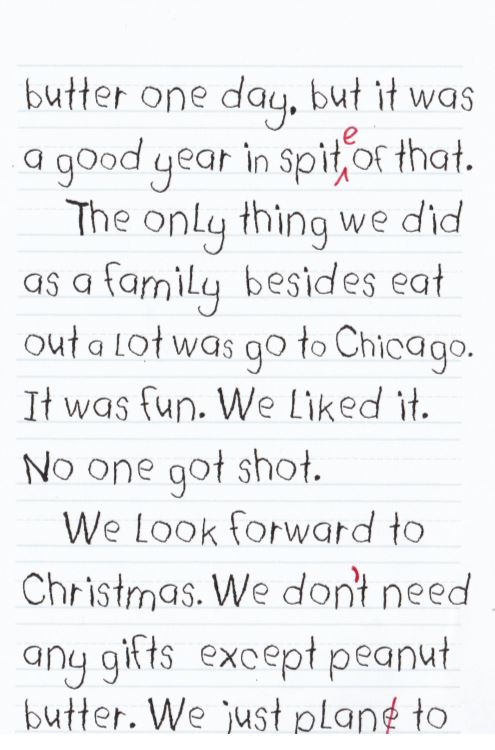 butter one day, but it was
a good year in spite of that.
The only thing we did
as a family besides eat
out a lot was go to Chicago.
It was fun. We liked it.
No one got shot.
We look forward to
Christmas. We don't need
any gifts except peanut
butter. We just plane to